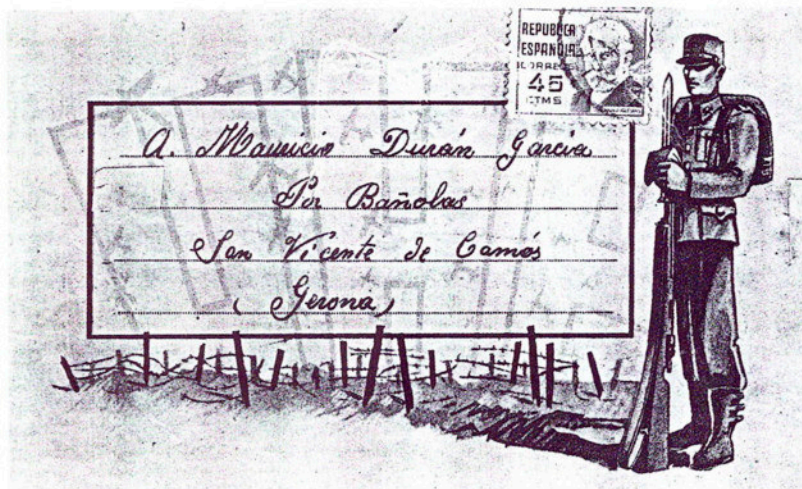 REPUBLICA
ESPAÑOLA
CORREOS
45
CTMS
A. Mauricio Durán García
Por Bañolas
San Vicente de Camós
(Gerona)